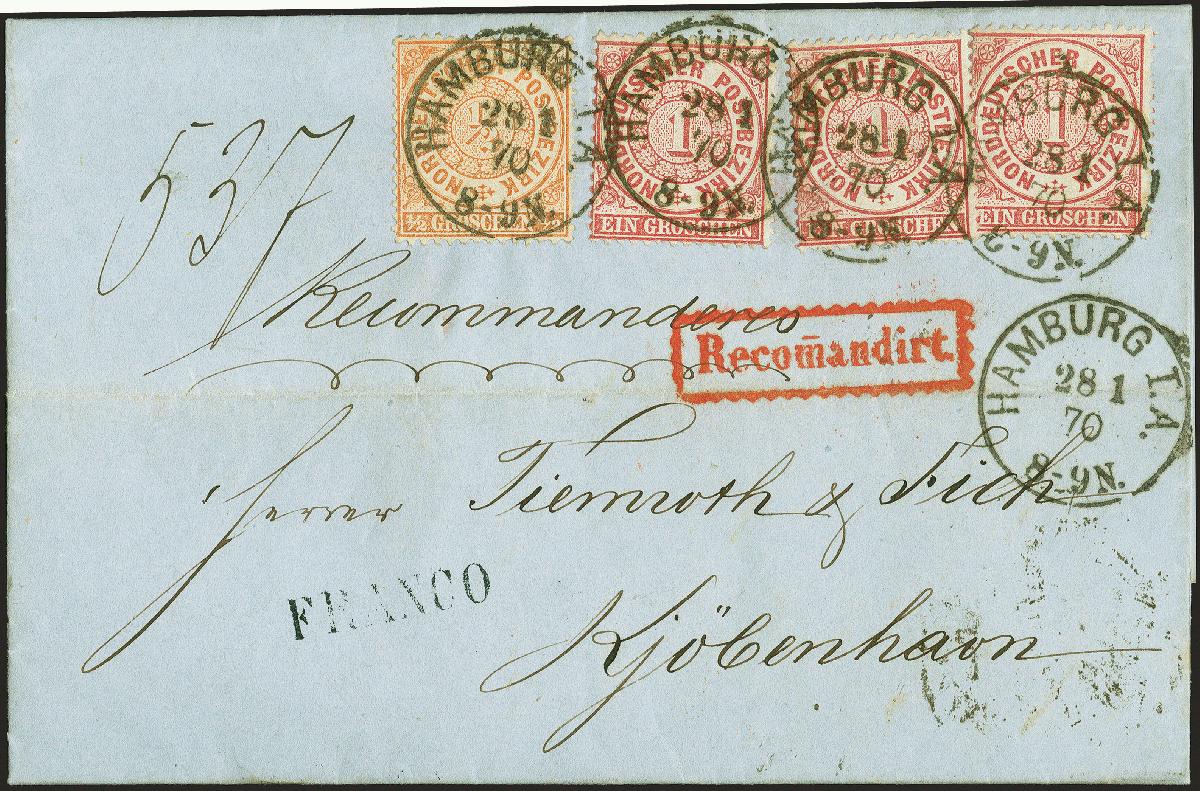 NORDDEUTSCHER POSTBEZIRK
1/2
½ GROSCHEN
HAMBURG I.A.
28 1
70
8-9N.
NORDDEUTSCHER POSTBEZIRK
1
EIN GROSCHEN
HAMBURG
28 1
70
8-9N.
NORDDEUTSCHER POSTBEZIRK
1
EIN GROSCHEN
HAMBURG I.A.
28 1
70
8-9N.
NORDDEUTSCHER POSTBEZIRK
1
EIN GROSCHEN
HAMBURG I.A.
28 1
70
8-9N.
537
Recommanderes
Recom̄andirt.
HAMBURG I.A.
28 1
70
8-9N.
Herrer Tiemroth & Fich
FRANCO
Kjöbenhavn